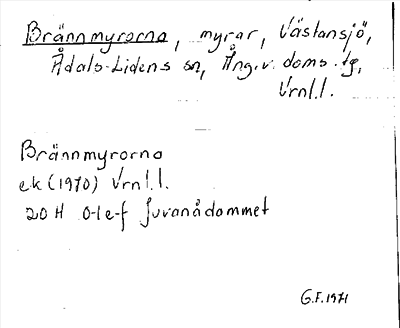 Brännmyrorna, myrar, Västansjö,
Ådals-Lidens sn, Ång. v. doms. tg,
Vrnl.l.
Brännmyrorna
ek (1970) Vrnl.l.
20 H 0-1 e-f Juvanådammet
G.F. 1971